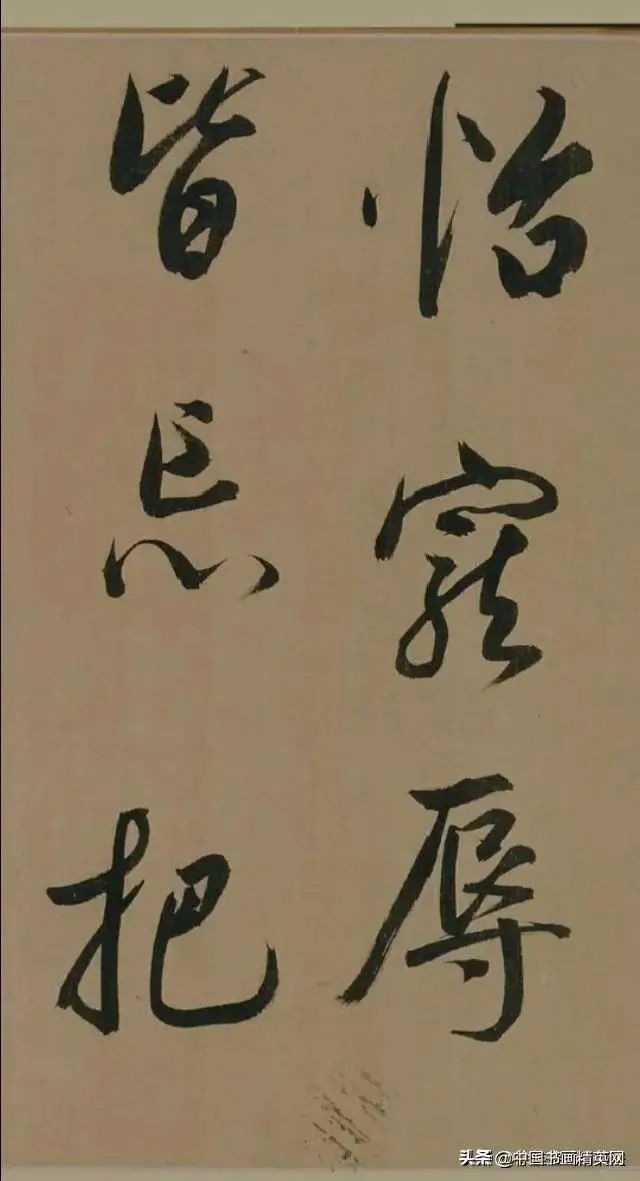 怡寵辱
皆忘把
头条 @中国书画精英网